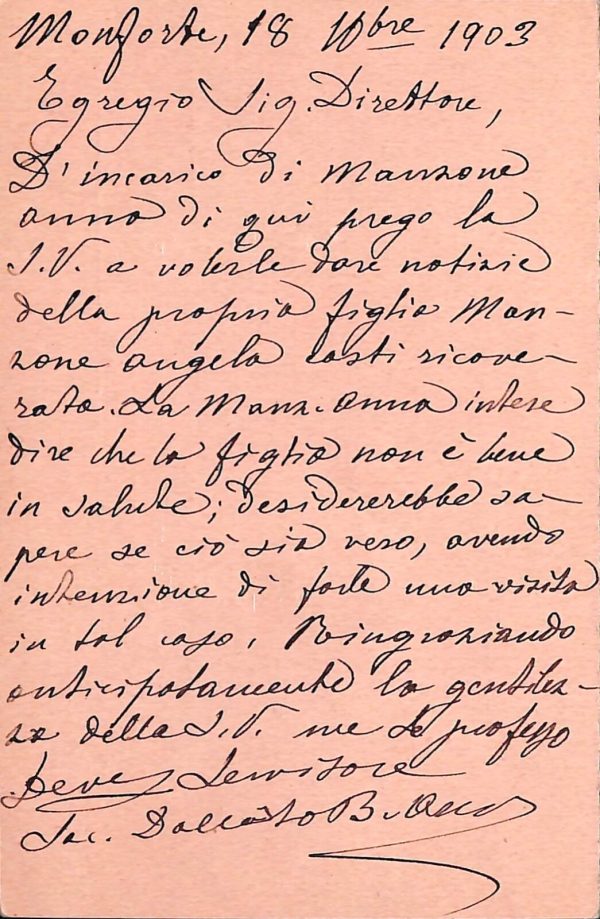 Monforte, 18 10bre 1903
Egregio Sig. Direttore,
D'incarico di Manzone
Anna di qui prego la
S.V. a volerle dare notizie
della propria figlia Man-
zone Angela costì ricove-
rata. La Manz. Anna intese
dire che la figlia non è bene
in salute; desidererebbe sa-
pere se ciò sia vero, avendo
intenzione di farle una visita
in tal caso. Ringraziando
anticipatamente la gentilez-
za della S.V. me Le professo
Dev. Servitore
Sac.